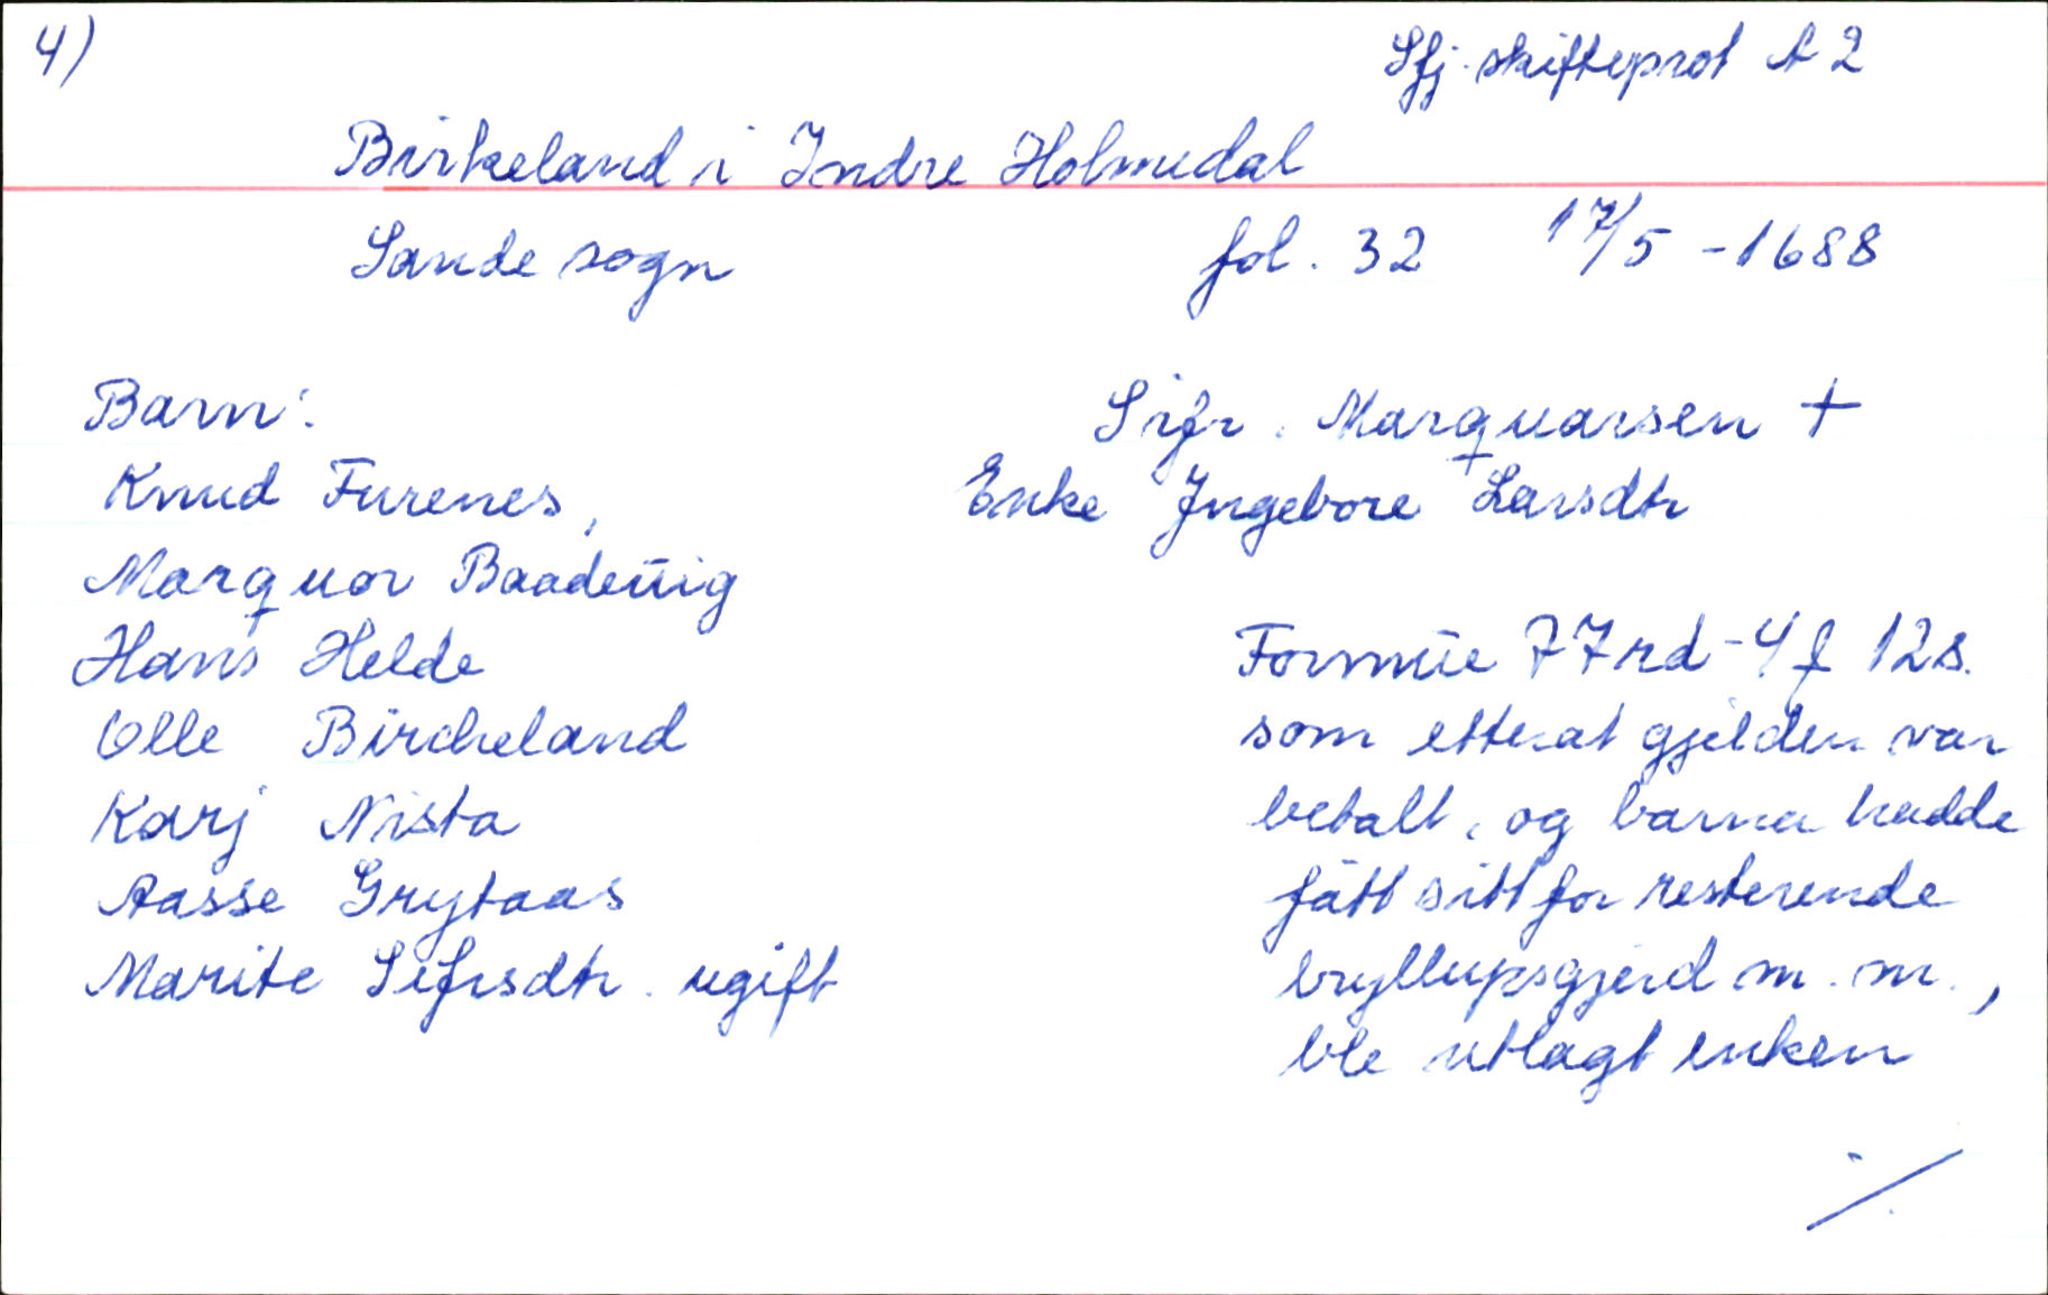 4)
Sfj. skifteprot A 2
Birkeland i Indre Holmedal
Sande sogn
fol. 32 17/5 - 1688
Barn:
Knud Furenes,
Marquor Baadeūig
Hans Helde
Olle Bircheland
Karj Nista
Aasse Grytaas
Marite Sifrsdtr. ugift
Sifr. Marquarsen +
Enke Ingebore Larsdtr
Formūe 77 rd - 4 f 12 s.
som etterat gjelden var
betalt, og barna hadde
fått sitt for resterende
bryllupsgjerd m.m.,
ble utlagt enken
./.